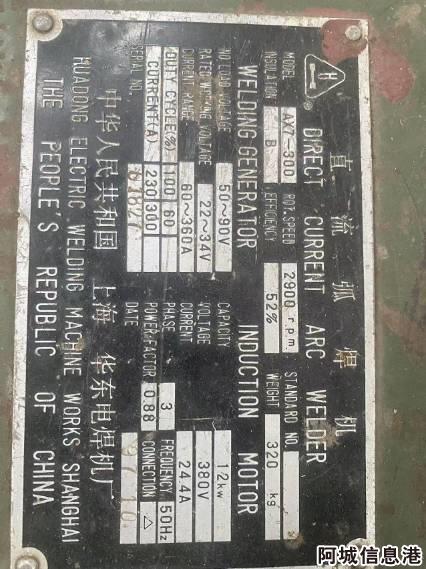 H
直流弧焊机
DIRECT CURRENT ARC WELDER
MODEL AX7-300 ROT. SPEED 2900 r.p.m. STANDARD NO.
INSULATION B EFFICIENCY 52% WEIGHT 320 kg
WELDING GENERATOR INDUCTION MOTOR
NO LOAD VOLTAGE 50~90V CAPACITY 12kw
RATED WELDING VOLTAGE 22~34V VOLTAGE 380V
CURRENT RANGE 60~360A CURRENT 24.4A
DUTY CYCLE(%) 100 60 PHASE 3 FREQUENCY 50Hz
CURRENT(A) 230 300 POWER-FACTOR 0.88 CONNECTION △
SERIAL NO. DATE
中华人民共和国 上海 华东电焊机厂
HUADONG ELECTRIC WELDING MACHINE WORKS SHANGHAI
THE PEOPLE'S REPUBLIC OF CHINA
阿城信息港